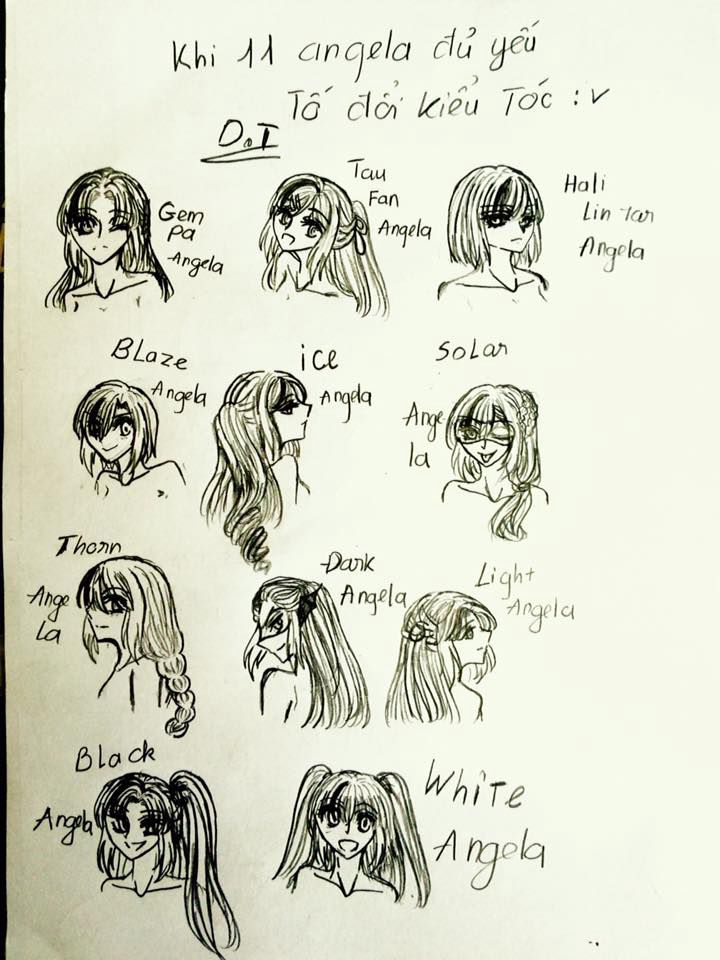 Khi 11 angela đủ yếu
Tố đổi kiểu Tóc :v
D.I
Gem
pa
Angela
Tau
Fan
Angela
Hali
Lin tar
Angela
Blaze
Angela
ice
Angela
Solar
Ange
la
Thorn
Ange
la
Dark
Angela
Light
Angela
Black
Angela
White
Angela